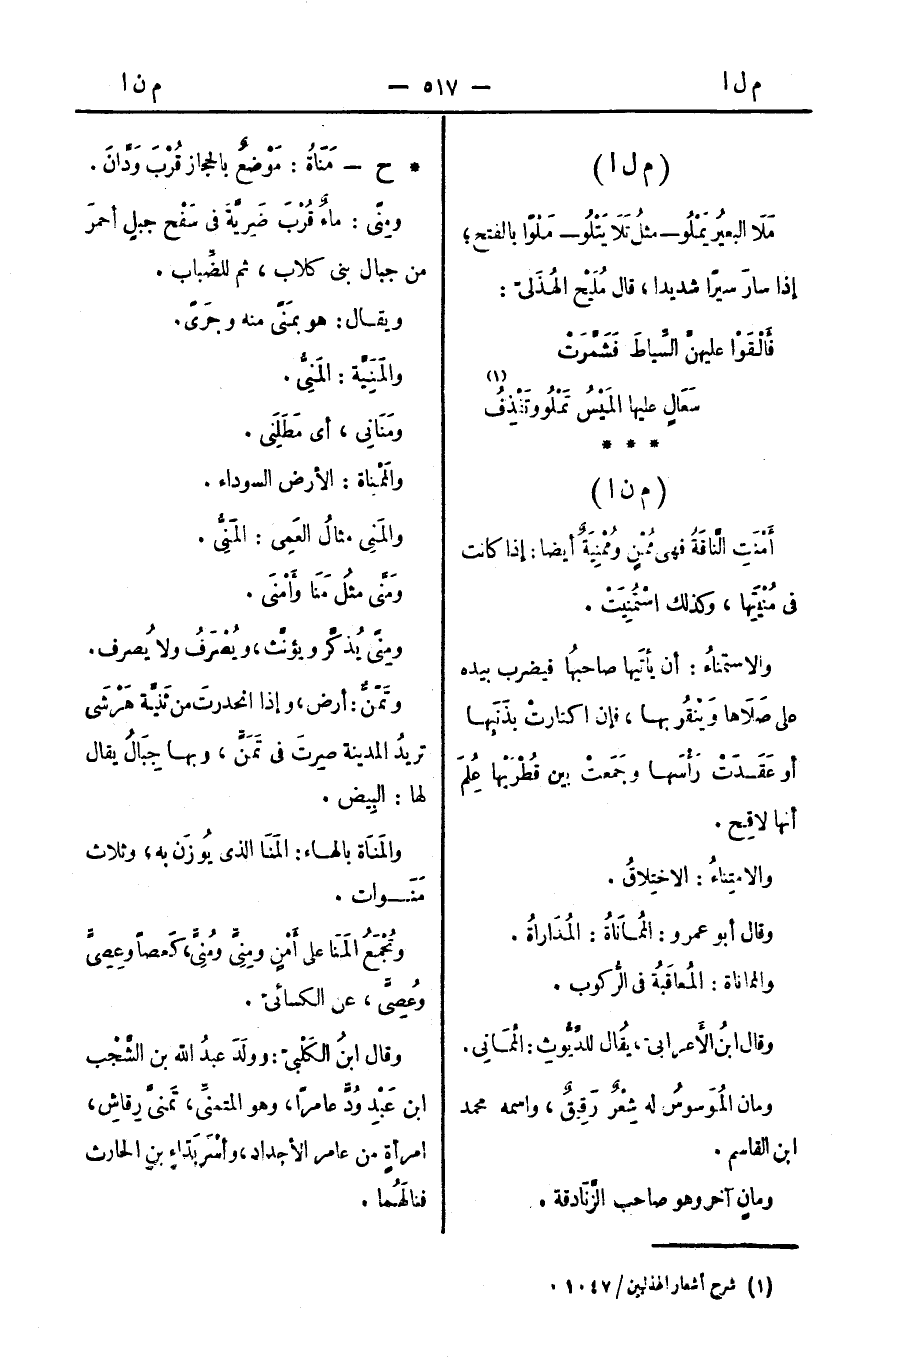 م ل ا — ٥١٧ — م ن ا
(م ل ا)
مَلَا البعيرُ يَمْلُو – مثلُ تَلَا يَتْلُو – مَلْوًا بالفتح؛
إذا سارَ سيرًا شديدا، قال مُلَيْح الهُذَلىّ:
فَأَلْقَوْا عليهنَّ السِّياطَ فَشَمَّرَتْ
سَعَالٍ عليها المَيْسُ تَمْلُو وتَقْذِفُ (١)
* * *
(م ن ا)
أَمْنَتِ النّاقَةُ فهى مُمْنٍ ومُمْنِيَةٌ أيضا: إذا كانت
فى مُنْيَتِها، وكذلك اسْتُمْنِيَتْ.
والاستمناءُ: أن يأتيَها صاحبُها فيضرب بيده
على صَلَاها وَيَنْقُر بها، فإن اكتارتْ بذَنَبِها
أو عَقَــدَتْ رَأْسَها وجَمَعتْ بين قُطْرَيْها عُلِمَ
أنها لاقِح.
والامتِناءُ: الاختِلاقُ.
وقال أبو عمرو: المُمَاناةُ: المُدَاراةُ.
والمماناة: المُعاقَبَةُ فى الرُّكوب.
وقال ابنُ الأعرابىّ، يقال للدَّيُّوثِ: المُمَانِي.
ومان المُوَسوسُ له شِعْرٌ رَقِيقٌ، واسمه محمد
ابن القاسم.
ومانٍ آخر وهو صاحب الزَّنَادقة.
* ح – مَنَاةُ: مَوْضعٌ بالحجاز قُرْبَ وَدَّانَ.
ومِنًى: ماءٌ قُرْبَ ضَرِيَّةَ فى سَفْح جبلٍ أحمرَ
من جبال بنى كلاب، ثم للضِّباب.
ويقــال: هو بِمَنًى منه وجَرًى.
والمَنِيَّة: المَنِيُّ.
ومَنَانِي، أى مَطَلَنِى.
والمَمْناة: الأرض السوداء.
والمَنِي مثالُ العَمِى: المَنِيُّ.
ومَنَّى مثلُ مَنَا وأَمْنَى.
ومِنًى يُذكَّر ويؤنَّث، ويُصْرَفُ ولا يُصرف.
وتَمَنٌّ: أرض، وإذا انحدرتَ من ثنيَّة هَرْشَى
تريدُ المدينة صِرتَ فى تَمَنٍّ، وبهــا جِبَالٌ يقال
لها: البِيض.
والمَناة بالهــاء: المَنَا الذى يُوزَن به، وثلاث
مَنَــوات.
وتُجْمَعُ المَنَا على أَمْنٍ ومِنِيٍّ ومُنِيٍّ، كَعصاً وعِصِيٍّ
وعُصِيٍّ، عن الكسائىّ.
وقال ابنُ الكَلْبىّ: وولَدَ عبدُ الله بن الشَّجْب
ابن عَبْدِ وُدٍّ عامرًا، وهو المتمنِّي، تَمنَّى رَقاشِ،
امرأةٍ من عامر الأجداد، وأَسْرَ بَذَّاءِ بنِ الحارث
فنالَهُما.
(١) شرح أشعار الهذليين/١٠٤٧.